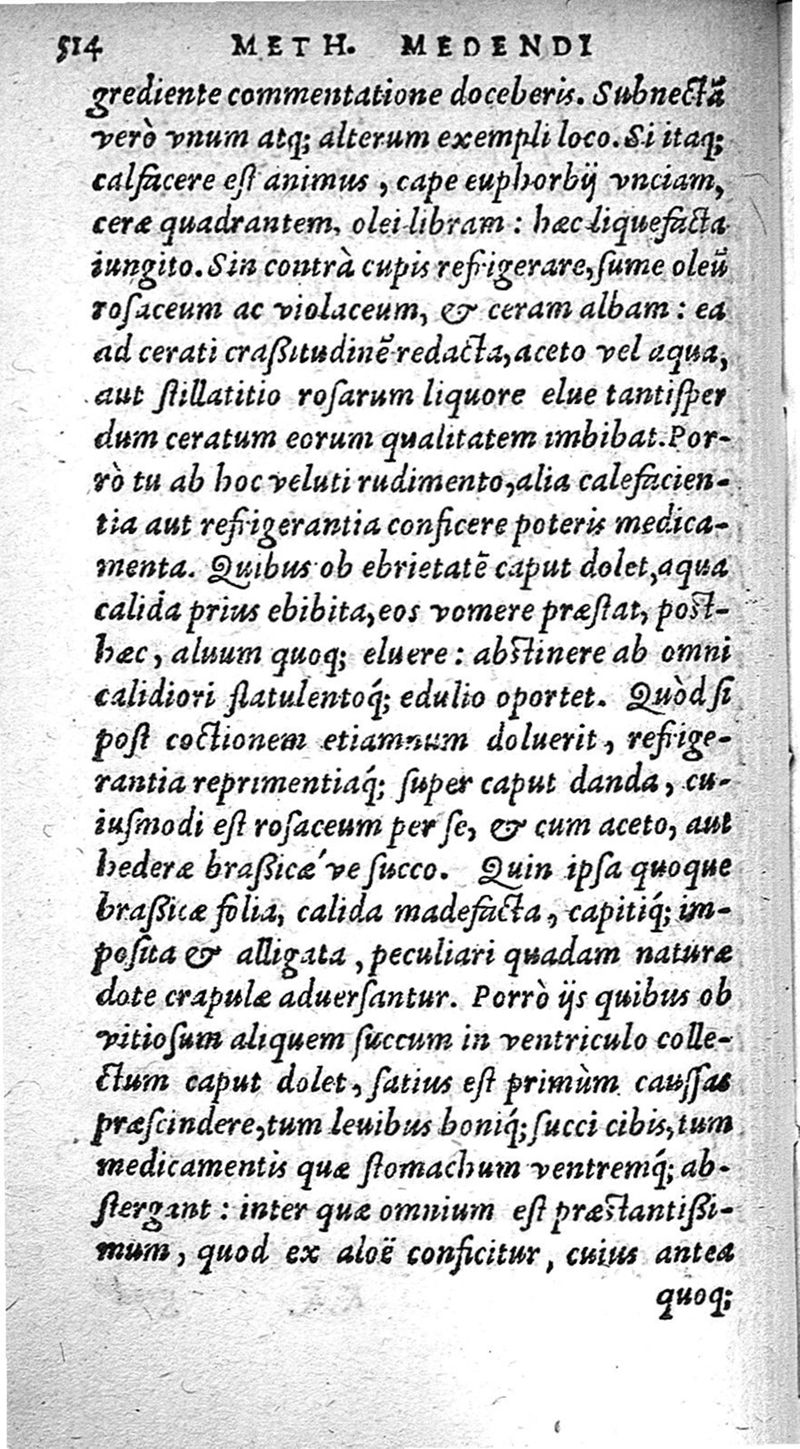 514 METH. MEDENDI
grediente commentatione doceberis. Subnectã
verò vnum atq; alterum exempli loco. Si itaq;
calfacere est animus, cape euphorbij vnciam,
ceræ quadrantem, olei libram : hæc liquefacta
iungito. Sin contrà cupis refrigerare, sume oleũ
rosaceum ac violaceum, & ceram albam : ea
ad cerati craßitudinẽ redacta, aceto vel aqua,
aut stillatitio rosarum liquore elue tantisper
dum ceratum eorum qualitatem imbibat. Por-
rò tu ab hoc veluti rudimento, alia calefacien-
tia aut refrigerantia conficere poteris medica-
menta. Quibus ob ebrietatẽ caput dolet, aqua
calida prius ebibita, eos vomere præstat, post-
hæc, aluum quoq; eluere : abstinere ab omni
calidiori flatulentoq́; edulio oportet. Quòd si
post coctionem etiamnum doluerit, refrige-
rantia reprimentiaq́; super caput danda, cu-
iusmodi est rosaceum per se, & cum aceto, aut
hederæ braßicæ´ve succo. Quin ipsa quoque
braßicæ folia, calida madefacta, capitiq́; im-
posita & alligata, peculiari quadam naturæ
dote crapulæ aduersantur. Porrò ijs quibus ob
vitiosum aliquem succum in ventriculo colle-
ctum caput dolet, satius est primùm caussas
præscindere, tum leuibus boniq́; succi cibis, tum
medicamentis quæ stomachum ventremq́; ab-
stergant : inter quæ omnium est præstantißi-
mum, quod ex aloë conficitur, cuius antea
quoq;